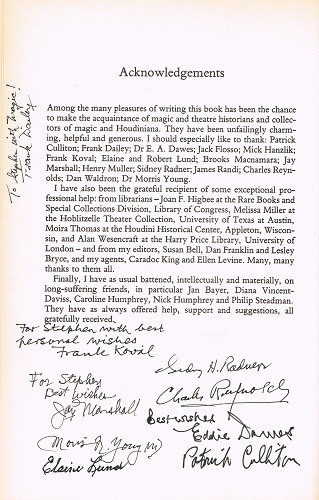 Acknowledgements
Among the many pleasures of writing this book has been the chance
to make the acquaintance of magic and theatre historians and collec-
tors of magic and Houdiniana. They have been unfailingly charm-
ing, helpful and generous. I should especially like to thank: Patrick
Culliton; Frank Dailey; Dr E. A. Dawes; Jack Flosso; Mick Hanzlik;
Frank Koval; Elaine and Robert Lund; Brooks Macnamara; Jay
Marshall; Henry Muller; Sidney Radner; James Randi; Charles Reyn-
olds; Dan Waldron; Dr Morris Young.
I have also been the grateful recipient of some exceptional pro-
fessional help: from librarians – Joan F. Higbee at the Rare Books and
Special Collections Division, Library of Congress, Melissa Miller at
the Hoblitzelle Theater Collection, University of Texas at Austin,
Moira Thomas at the Houdini Historical Center, Appleton, Wiscon-
sin, and Alan Wesencraft at the Harry Price Library, University of
London – and from my editors, Susan Bell, Dan Franklin and Lesley
Bryce, and my agents, Caradoc King and Ellen Levine. Many, many
thanks to them all.
Finally, I have as usual battened, intellectually and materially, on
long-suffering friends, in particular Jan Bayer, Diana Vincent-
Daviss, Caroline Humphrey, Nick Humphrey and Philip Steadman.
They have as always offered help, support and suggestions, all
gratefully received.
To Stephen with Magic!
Frank Dailey
For Stephen with best
personal wishes
Frank Koval
Sidney H. Radner
For Stephen
Best Wishes
Jay Marshall
Charles Reynolds
Best wishes
Eddie Dawes
Morris N Young MD
Elaine Lund
Patrick Culliton